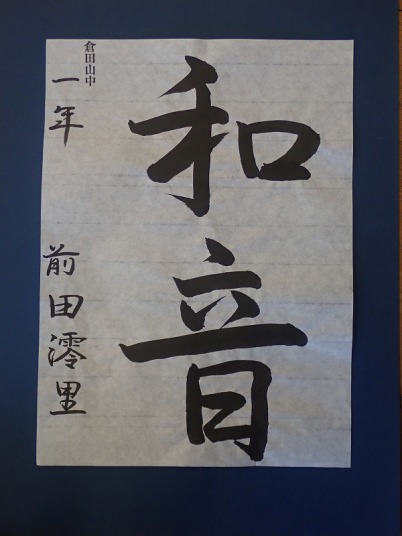 和音
倉田山中
一年 前田澪里